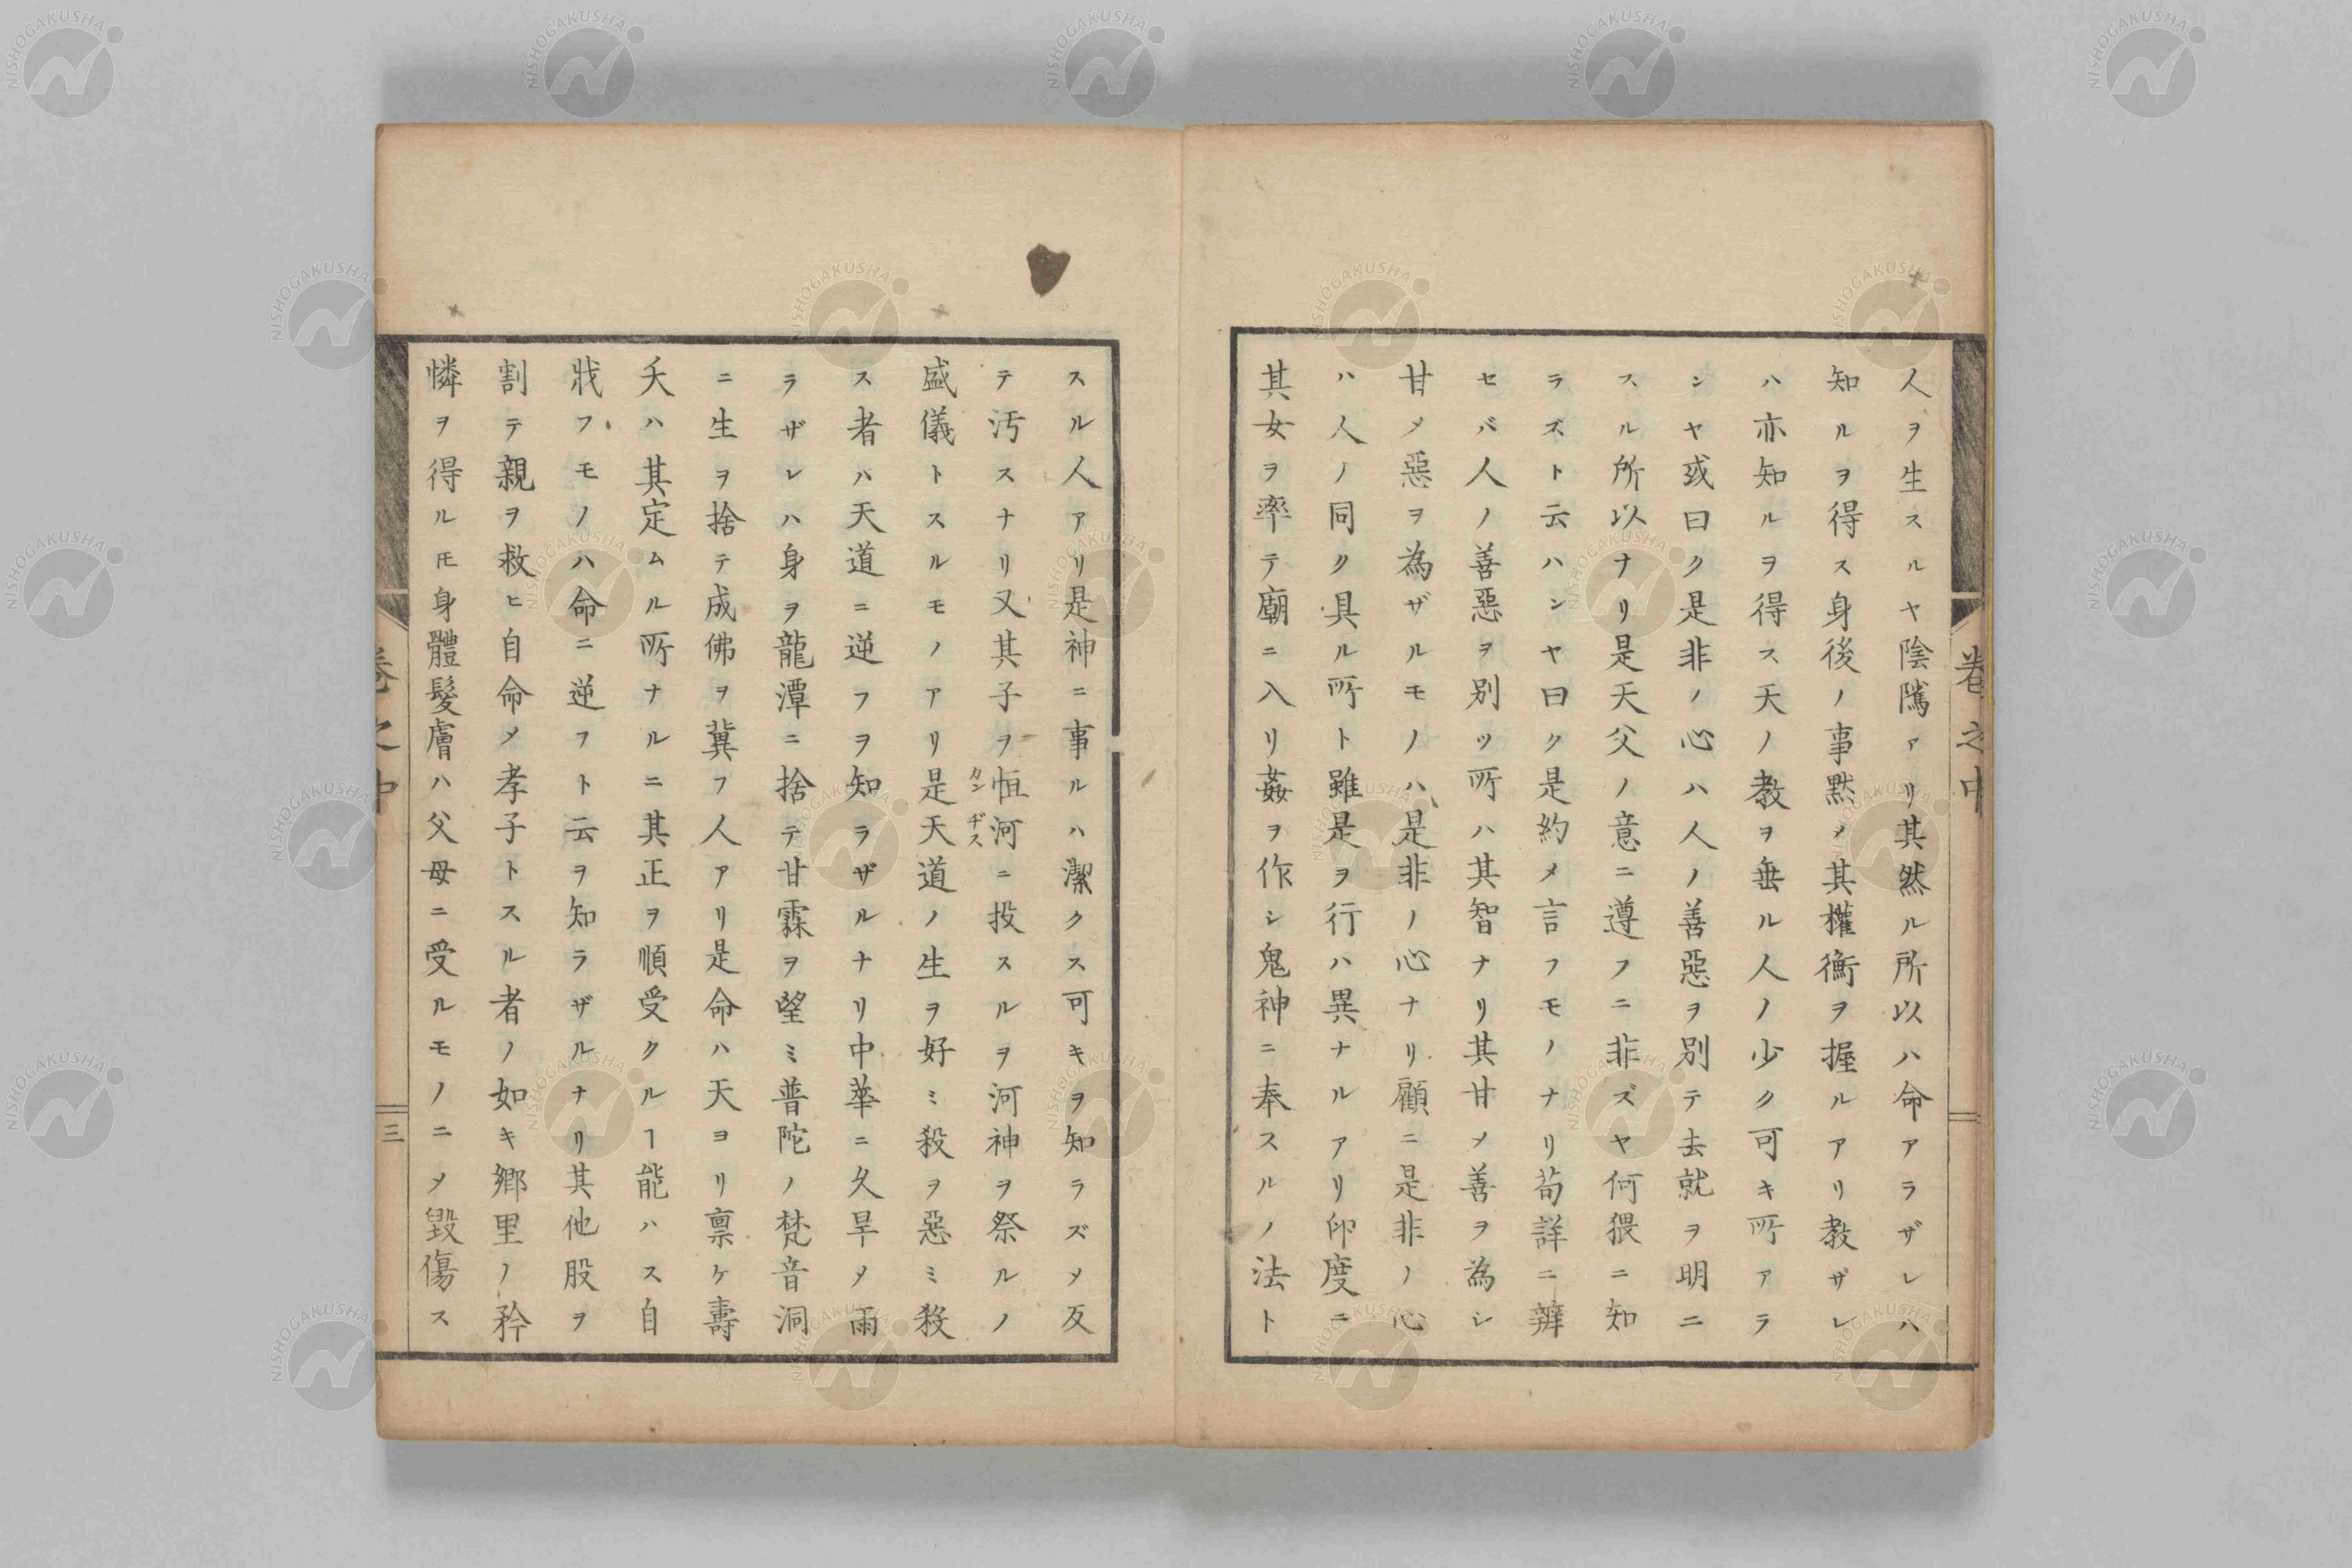 人ヲ生スルヤ陰隲アリ其然ル所以ハ命アラザレハ
知ルヲ得ス身後ノ事黙メ其權衡ヲ握ルアリ教ザレ
ハ亦知ルヲ得ス天ノ教ヲ垂ル人ノ少ク可キ所アラ
シヤ或曰ク是非ノ心ハ人ノ善惡ヲ別テ去就ヲ明ニ
スル所以ナリ是天父ノ意ニ遵フニ非ズヤ何猥ニ知
ラズト云ハンヤ曰ク是約メ言フモノナリ苟詳ニ辨
セバ人ノ善惡ヲ別ツ所ハ其智ナリ其甘メ善ヲ為シ
甘メ惡ヲ為ザルモノハ是非ノ心ナリ顧ニ是非ノ心
ハ人ノ同ク具ル所ト雖是ヲ行ハ異ナルアリ印度ニ
其女ヲ率テ廟ニ入リ姦ヲ作シ鬼神ニ奉スルノ法ト
巻之中
スル人アリ是神ニ事ルハ潔クス可キヲ知ラズメ反
テ汚スナリ又其子ヲ恒河ニ投スルヲ河神ヲ祭ルノ
カンヂス
盛儀トスルモノアリ是天道ノ生ヲ好ミ殺ヲ惡ミ殺
ス者ハ天道ニ逆フヲ知ラザルナリ中華ニ久旱メ雨
ラザレハ身ヲ龍潭ニ捨テ甘霖ヲ望ミ普陀ノ梵音洞
ニ生ヲ捨テ成佛ヲ冀フ人アリ是命ハ天ヨリ稟ケ壽
夭ハ其定ムル所ナルニ其正ヲ順受クルヿ能ハス自
戕フモノハ命ニ逆フト云ヲ知ラザルナリ其他股ヲ
割テ親ヲ救ヒ自命メ孝子トスル者ノ如キ郷里ノ矜
憐ヲ得ルモ身體髮膚ハ父母ニ受ルモノニメ毀傷ス
巻之中
三
NISHOGAKUSHA